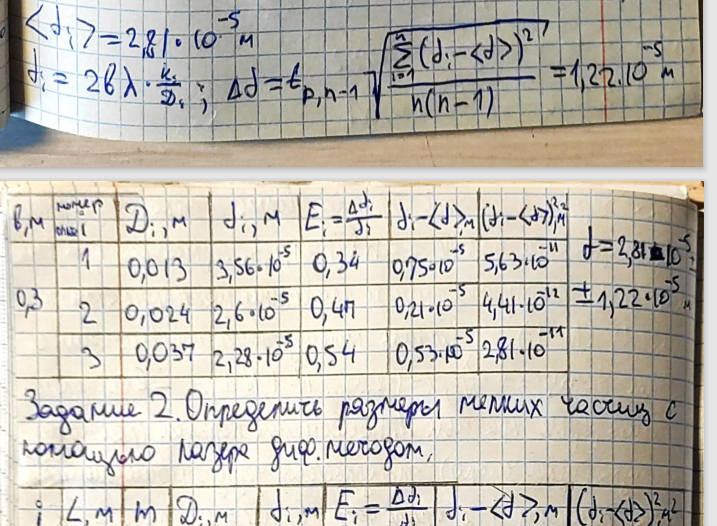 <dᵢ> = 2,81·10⁻⁵ м
dᵢ = 2bλ · kᵢ/Dᵢ ; Δd = t_{p,n-1} √(∑_{i=1}^{n} (dᵢ-<d>)² / n(n-1)) = 1,22·10⁻⁵ м
b, м | номер опыта i | Dᵢ, м | dᵢ, м | Eᵢ = Δdᵢ/dᵢ | dᵢ-<d>, м | (dᵢ-<d>)², м²
1 | 0,013 | 3,56·10⁻⁵ | 0,34 | 0,75·10⁻⁵ | 5,63·10⁻¹¹
0,3 | 2 | 0,024 | 2,6·10⁻⁵ | 0,47 | 0,21·10⁻⁵ | 4,41·10⁻¹²
3 | 0,037 | 2,28·10⁻⁵ | 0,54 | 0,53·10⁻⁵ | 2,81·10⁻¹¹
d = 2,81·10⁻⁵ ±
± 1,22·10⁻⁵ м
Задание 2. Определить размеры мелких частиц с
помощью лазера диф. методом.
i | L, м | m | Dᵢ, м | dᵢ, м | Eᵢ = Δdᵢ/dᵢ | dᵢ-<d>, м | (dᵢ-<d>)², м²